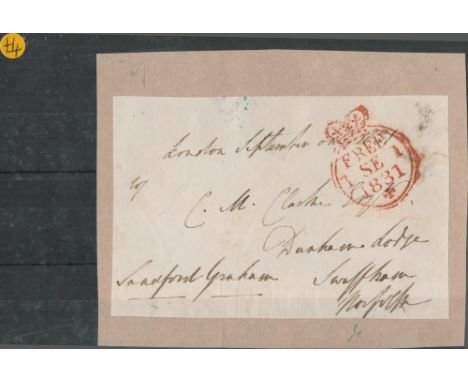 £4
London September one
C. M. Clarke Esqr
Dunham Lodge
Sandford Graham Swaffham
Norfolk
FREE
1 SE 1
1831